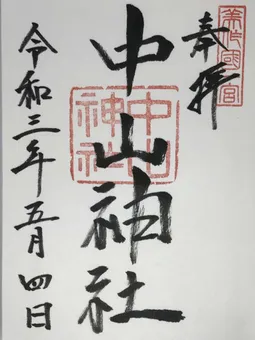 奉拝
美作國一宮
中山神社
中山神社
令和三年五月四日